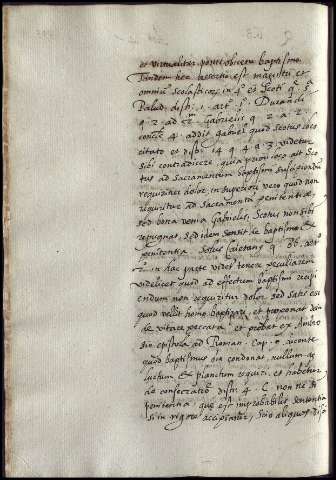 et virtualiter ponit obicem baptismo
Tandem hec assertio est magistri et
omnium scolasticorum in 4º et Scoti q. 2ª
Palud. disti. 4 art. 5 Durandi
q 2 ad 2m Gabrielis q 2 a 2
concl. 4 addit gabriel quod scotus loco
citato et disti 14 q 4 a 3 videtur
sibi contradicere, quia priori loco ait Sco
tus ad Sacramentum baptismi suscipiendum
requiri dolor, in superiori vero quod non
requiritur ad Sacramentum penitentiæ,
sed bona venia Gabrielis, Scotus non sibi
repugnat, sed idem sentit de baptismo et
penitentia Solus Caietanus q 86 art
2 in hac parte videtur tenere peculiarem
videlicet quod ad effectum baptismi recipi
endum non requiritur dolor, sed satis est
quod velit homo baptizari, et proponat
de vitare peccata et probat ex Ambro
sio in epistola ad Roman. Cap. 9 dicente
quod baptismus oia condonat, nullum
luctum et planctum requirit, et habetur
de consecratione disti 4 C. non ne
penitentia, que est improbabilis sententia
si in rigore accipiatur, scio aliquos